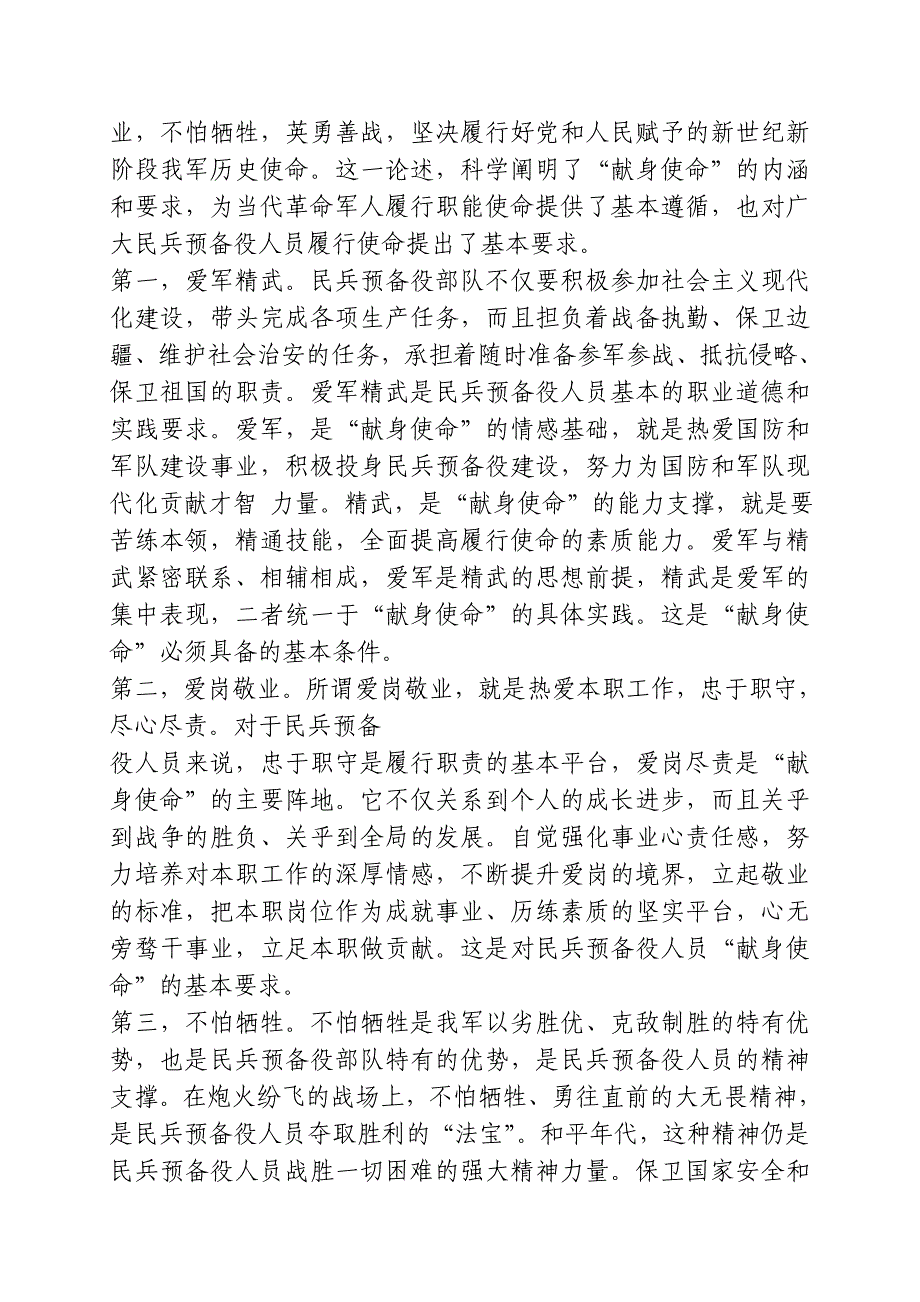 业，不怕牺牲，英勇善战，坚决履行好党和人民赋予的新世纪新
阶段我军历史使命。这一论述，科学阐明了“献身使命”的内涵
和要求，为当代革命军人履行职能使命提供了基本遵循，也对广
大民兵预备役人员履行使命提出了基本要求。
第一，爱军精武。民兵预备役部队不仅要积极参加社会主义现代
化建设，带头完成各项生产任务，而且担负着战备执勤、保卫边
疆、维护社会治安的任务，承担着随时准备参军参战、抵抗侵略、
保卫祖国的职责。爱军精武是民兵预备役人员基本的职业道德和
实践要求。爱军，是“献身使命”的情感基础，就是热爱国防和
军队建设事业，积极投身民兵预备役建设，努力为国防和军队现
代化贡献才智 力量。精武，是“献身使命”的能力支撑，就是要
苦练本领，精通技能，全面提高履行使命的素质能力。爱军与精
武紧密联系、相辅相成，爱军是精武的思想前提，精武是爱军的
集中表现，二者统一于“献身使命”的具体实践。这是“献身使
命”必须具备的基本条件。
第二，爱岗敬业。所谓爱岗敬业，就是热爱本职工作，忠于职守，
尽心尽责。对于民兵预备
役人员来说，忠于职守是履行职责的基本平台，爱岗尽责是“献
身使命”的主要阵地。它不仅关系到个人的成长进步，而且关乎
到战争的胜负、关乎到全局的发展。自觉强化事业心责任感，努
力培养对本职工作的深厚情感，不断提升爱岗的境界，立起敬业
的标准，把本职岗位作为成就事业、历练素质的坚实平台，心无
旁骛干事业，立足本职做贡献。这是对民兵预备役人员“献身使
命”的基本要求。
第三，不怕牺牲。不怕牺牲是我军以劣胜优、克敌制胜的特有优
势，也是民兵预备役部队特有的优势，是民兵预备役人员的精神
支撑。在炮火纷飞的战场上，不怕牺牲、勇往直前的大无畏精神，
是民兵预备役人员夺取胜利的“法宝”。和平年代，这种精神仍是
民兵预备役人员战胜一切困难的强大精神力量。保卫国家安全和